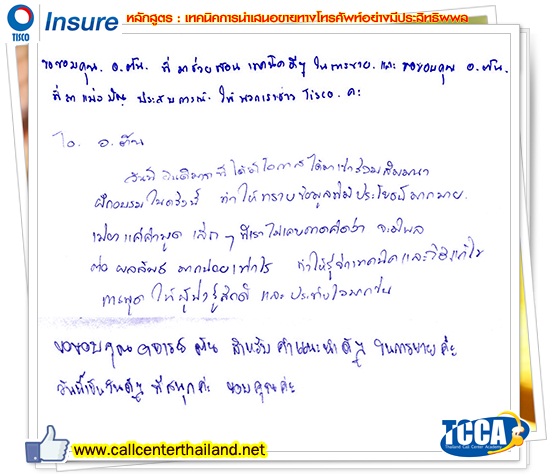 TISCO Insure หลักสูตร : เทคนิคการนำเสนอขายทางโทรศัพท์อย่างมีประสิทธิผล
ขอขอบคุณ อ.ตั้น. ที่มาช่วยสอน เทคนิคดีๆ ในการขาย. และ ขอขอบคุณ อ.ตั้น.
ที่มาแบ่งปัน ประสบการณ์. ให้พวกเราชาว Tisco. คะ
To. อ.ตั้น
วันนี้ ที่ได้มีโอกาสได้มาเข้าร่วมสัมมนา
ฝึกอบรมในครั้งนี้ ทำให้ทราบข้อมูลที่มีประโยชน์มากมาย.
แค่คำพูด เล็กๆ ที่เราไม่เคยคาดคิดว่า จะมีผล
ต่อ ผลลัพธ์ มากน้อยเท่าไร ทำให้รู้จักเทคนิค และวิธีแก้ไข
การพูด ให้ผู้ฟังรู้สึกดี และ ประทับใจมากขึ้น
ขอขอบคุณอาจารย์ ตั้น สำหรับ คำแนะนำดีๆ ในการขายค่ะ
วันนี้เป็นวันดีๆ ที่สนุกค่ะ ขอบคุณค่ะ
www.callcenterthailand.net
TCCA
Thailand Call Center Academy